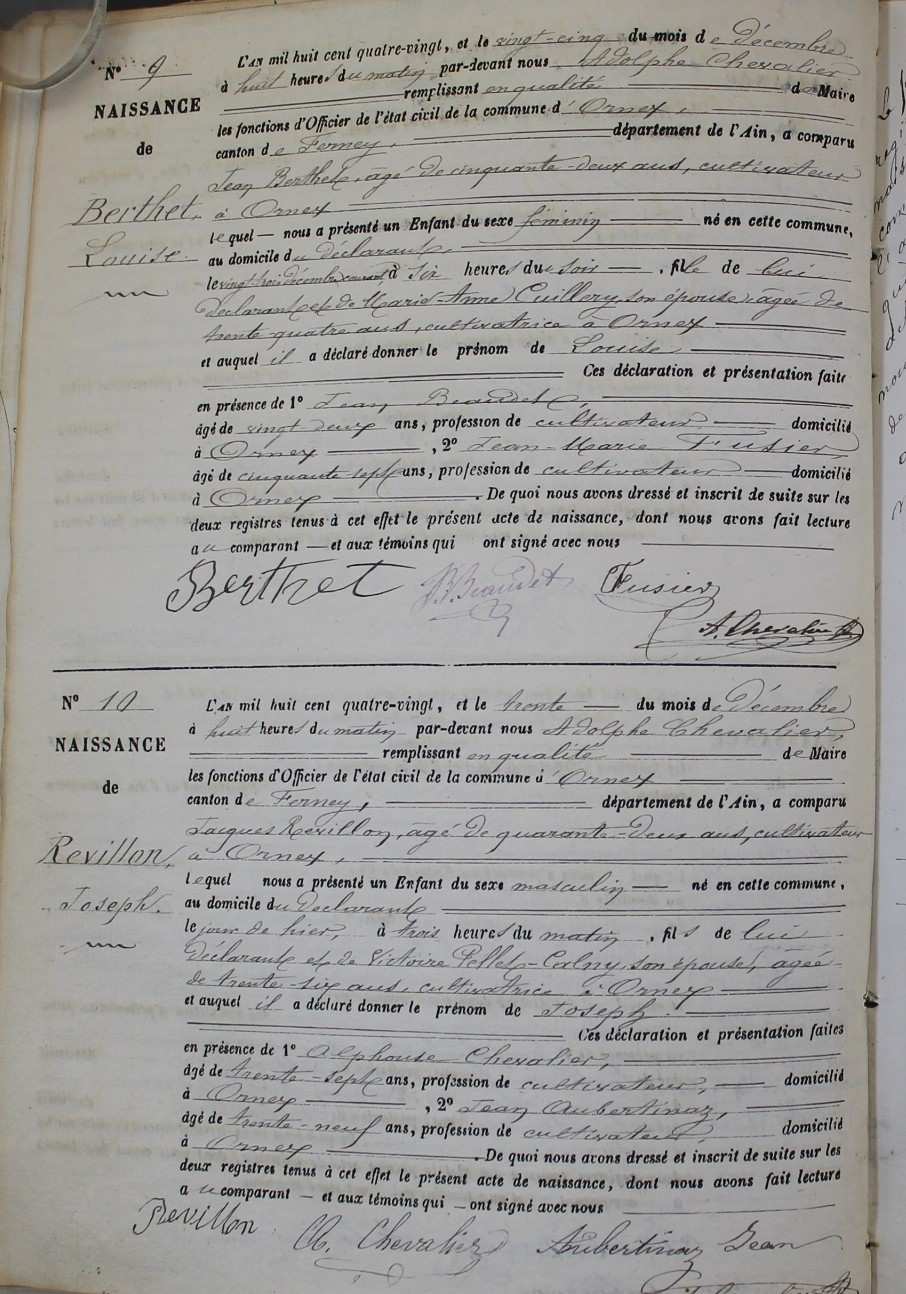 N° 9
NAISSANCE
de
Berthet,
Louise.
L'AN mil huit cent quatre-vingt, et le vingt-cinq du mois de Décembre
à huit heures du matin par-devant nous Adolphe Chevalier
remplissant en qualité de Maire
les fonctions d'Officier de l'état civil de la commune d'Ornex,
canton de Ferney, département de l'Ain, a comparu
Jean Berthet, agé de cinquante-deux ans, cultivateur
à Ornex
lequel nous a présenté un Enfant du sexe féminin né en cette commune,
au domicile du déclarant
le vingt trois Décembre courant, à six heures du soir, fille de lui
déclarant et de Marie-Anne Cuillery, son épouse, âgée de
trente-quatre ans, cultivatrice à Ornex
et auquel il a déclaré donner le prénom de Louise
Ces déclaration et présentation faites
en présence de 1° Jean Beaudet,
âgé de vingt deux ans, profession de cultivateur, domicilié
à Ornex, 2° Jean-Marie Fusier,
âgé de cinquante-sept ans, profession de cultivateur domicilié
à Ornex. De quoi nous avons dressé et inscrit de suite sur les
deux registres tenus à cet effet le présent acte de naissance, dont nous avons fait lecture
au comparant et aux témoins qui ont signé avec nous
Berthet Beaudet Fusier
A. Chevalier
N° 10
NAISSANCE
de
Revillon,
Joseph.
L'AN mil huit cent quatre-vingt, et le trente du mois de Décembre
à huit heures du matin par-devant nous Adolphe Chevalier,
remplissant en qualité de Maire
les fonctions d'Officier de l'état civil de la commune d'Ornex
canton de Ferney, département de l'Ain, a comparu
Jacques Revillon, agé de quarante-deux ans, cultivateur
à Ornex,
lequel nous a présenté un Enfant du sexe masculin né en cette commune,
au domicile du déclarant
le jour de hier, à trois heures du matin, fils de lui
déclarant et de Victoire Pellet-Calny, son épouse, agée
de trente-six ans, cultivatrice à Ornex
et auquel il a déclaré donner le prénom de Joseph.
Ces déclaration et présentation faites
en présence de 1° Alphonse Chevalier,
âgé de trente-sept ans, profession de cultivateur, domicilié
à Ornex, 2° Jean Aubertinaz,
âgé de trente-neuf ans, profession de cultivateur, domicilié
à Ornex. De quoi nous avons dressé et inscrit de suite sur les
deux registres tenus à cet effet le présent acte de naissance, dont nous avons fait lecture
au comparant et aux témoins qui ont signé avec nous
Revillon Chevalier Aubertinaz Jean